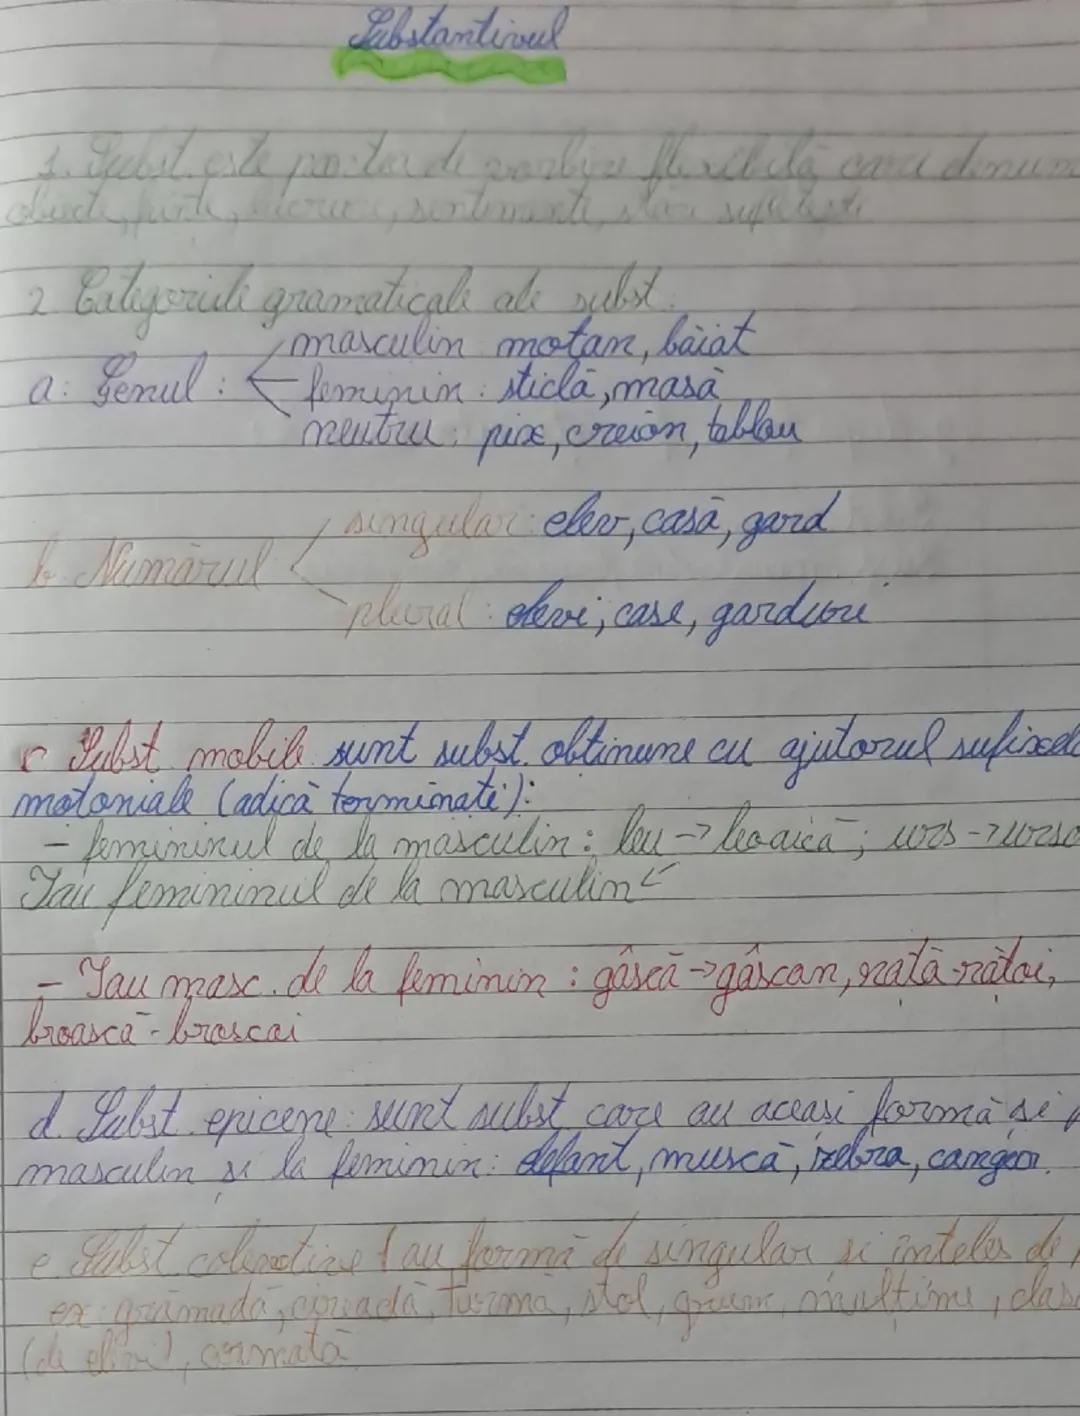 Substantivul
1. Subst. este partea de vorbire flexibilă care denum
obiecte, ființe, sentimente, stări sufletești
2 Categoriile gramaticale ale subst.
masculin motan, băiat
a. Genul : feminin : sticlă, masă
neutru : pix, creion, tablou
singular : elev, casă, gard
b. Numărul
plural : elevi, case, garduri
c Subst mobile sunt subst. obtinune cu ajutorul sufixel
motoniale (adică terminate):
- femininul de la masculin : leu -> leoaică ; urs -> urso
Sau femininul de la masculin
- Sau masc. de la feminin : gâscă -> gâscan, rață - rățoi,
broască - broscoi
d. Subst. epicene : sunt subst care au aceasi formă și
masculin și la feminin : elefant, muscă, zebra, cangur.
e. Subst colective au formă de singular si înteles de
ex : grămadă, cireadă, turmă, stol, grup, mulțime, clas
(de elevi), armată